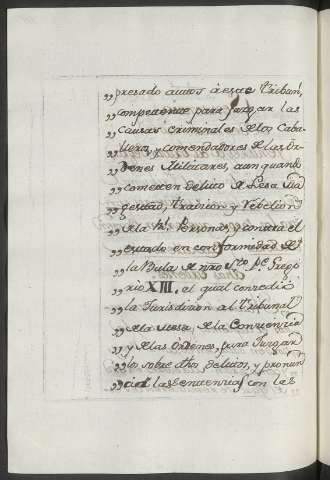 „presado autos à esse Tribun,
„competente para Juzgar las
„Causas Criminales de los Caba-
„lleros, y comendadores de las Or-
„denes Militares, aunqu
„cometen delito de Lesa Ma
„gestad, tradicion y rebelion
„de la Rl. Persona, o contra el
„estado en conformidad de
„la Bula de nro. Sto. Pe. Grego
„rio XIII, el qual concedio
„la Jurisdicion al Tribunal
„de la Mesa de la Conciencia
„y de las Ordenes, para Juzgar
„los sobre dhos. delitos, y pronun
„ciar las Sentencias con las